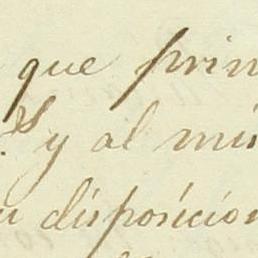 que prin
y al mis
disposicion